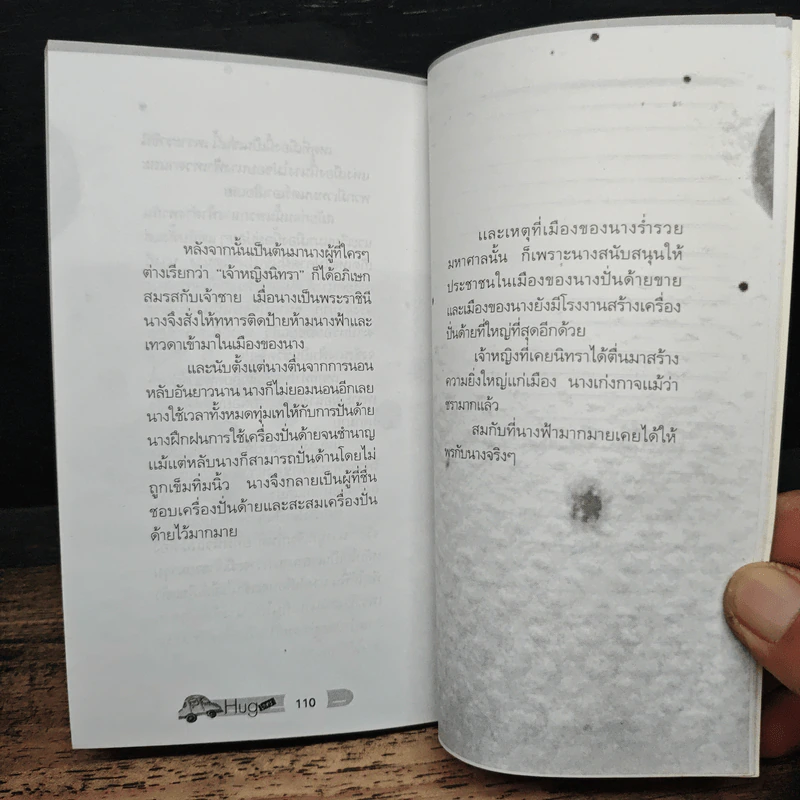 หลังจากนั้นเป็นต้นมานางผู้ที่ใครๆ
ต่างเรียกว่า “เจ้าหญิงนิทรา” ก็ได้อภิเษก
สมรสกับเจ้าชาย เมื่อนางเป็นพระราชินี
นางจึงสั่งให้ทหารติดป้ายห้ามนางฟ้าและ
เทวดาเข้ามาในเมืองของนาง
และนับตั้งแต่นางตื่นจากการนอน
หลับอันยาวนาน นางก็ไม่ยอมนอนอีกเลย
นางใช้เวลาทั้งหมดทุ่มเทให้กับการปั่นด้าย
นางฝึกฝนการใช้เครื่องปั่นด้ายจนชำนาญ
แม้แต่หลับนางก็สามารถปั่นด้านโดยไม่
ถูกเข็มทิ่มนิ้ว นางจึงกลายเป็นผู้ที่ชื่น
ชอบเครื่องปั่นด้ายและสะสมเครื่องปั่น
ด้ายไว้มากมาย
Hug
110
และเหตุที่เมืองของนางร่ำรวย
มหาศาลนั้น ก็เพราะนางสนับสนุนให้
ประชาชนในเมืองของนางปั่นด้ายขาย
และเมืองของนางยังมีโรงงานสร้างเครื่อง
ปั่นด้ายที่ใหญ่ที่สุดอีกด้วย
เจ้าหญิงที่เคยนิทราได้ตื่นมาสร้าง
ความยิ่งใหญ่แก่เมือง นางเก่งกาจแม้ว่า
ชรามากแล้ว
สมกับที่นางฟ้ามากมายเคยได้ให้
พรกับนางจริงๆ